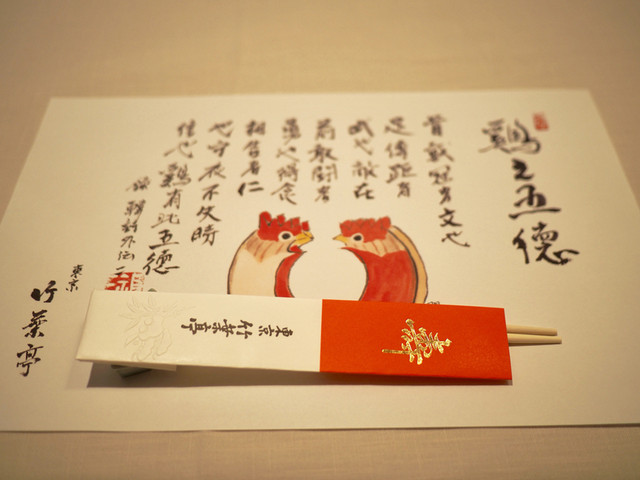 鶏之五徳
首戴冠者文也
足傅距者
武也敵在
前敢闘者
勇也得食
相告者仁
也守夜不失時
信也 鶏有此五徳
録 韓詩外伝
東京
竹葉亭
東京 竹葉亭